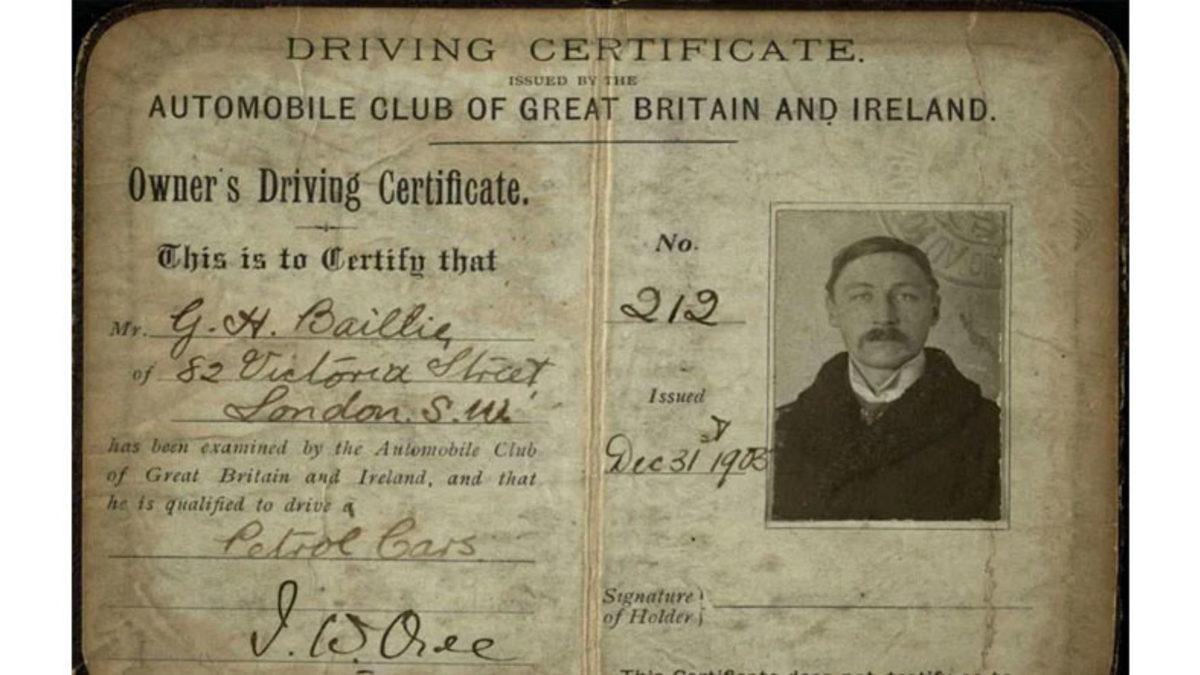 DRIVING CERTIFICATE.
ISSUED BY THE
AUTOMOBILE CLUB OF GREAT BRITAIN AND IRELAND.
Owner's Driving Certificate.
This is to Certify that
Mr. G. H. Baillie
of 82 Victoria Street
London. S.W.
has been examined by the Automobile Club
of Great Britain and Ireland, and that
he is qualified to drive a
Petrol Cars
No.
212
Issued
Dec 31 1903
Signature
of Holder
This Certificate does not testify as to